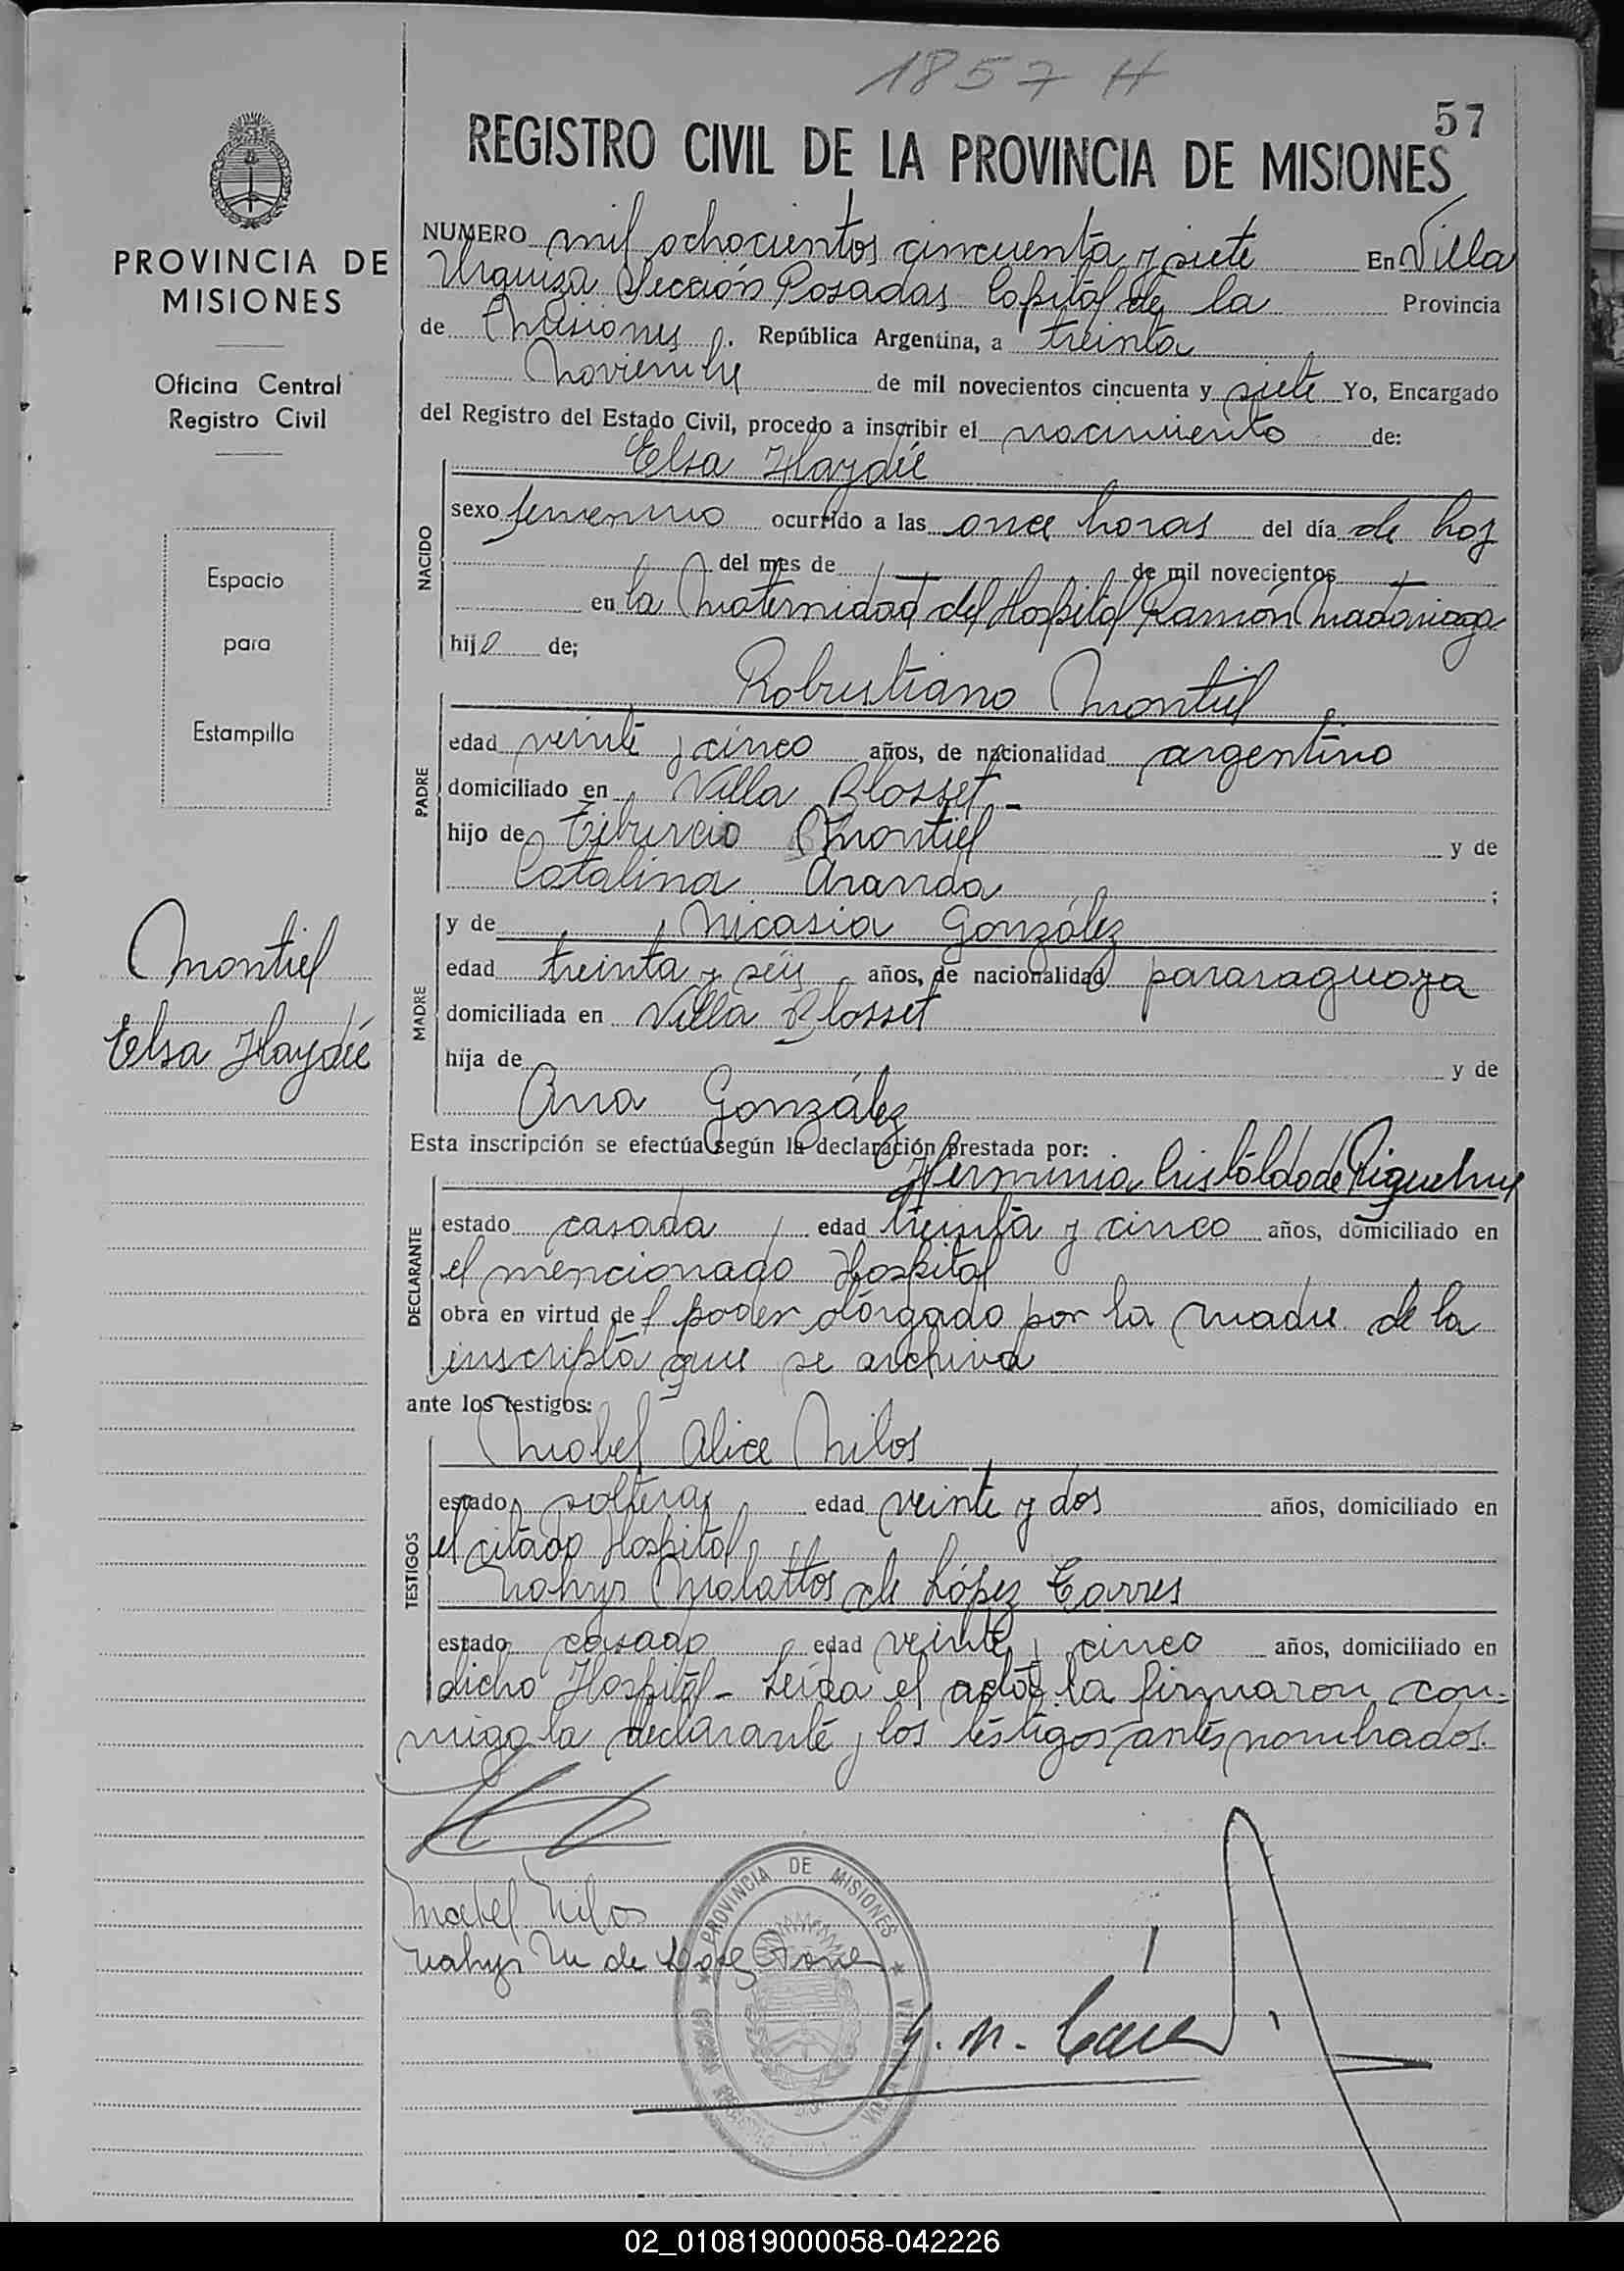 1857 H
57
REGISTRO CIVIL DE LA PROVINCIA DE MISIONES
PROVINCIA DE
MISIONES
Oficina Central
Registro Civil
Espacio
para
Estampilla
Montiel
Elsa Haydée
NUMERO mil ochocientos cincuenta y siete En Villa
Urquiza Sección Posadas Capital de la Provincia
de Misiones. República Argentina, a treinta
Noviembre de mil novecientos cincuenta y siete Yo, Encargado
del Registro del Estado Civil, procedo a inscribir el nacimiento de:
Elsa Haydée
NACIDO
sexo femenino ocurrido a las once horas del día de hoy
del mes de de mil novecientos
en la Maternidad del Hospital Ramón Madariaga
hija de;
Robustiano Montiel
PADRE
edad veinte y cinco años, de nacionalidad argentino
domiciliado en Villa Blosset -
hijo de Tiburcio Montiel y de
Catalina Aranda ;
MADRE
y de Nicasia González
edad treinta y séis años, de nacionalidad pararaguaya
domiciliada en Villa Blosset
hija de y de
Ana González
Esta inscripción se efectúa según la declaración prestada por:
Herminia Cristaldo de Riquelme
DECLARANTE
estado casada edad treinta y cinco años, domiciliado en
el mencionado Hospital
obra en virtud del poder otorgado por la madre de la
inscripta que se archiva
ante los testigos:
Mabel Alice Nilos
TESTIGOS
estado soltera edad veinte y dos años, domiciliado en
el citado Hospital
Nahyr Malattos de López Torres
estado casada edad veinte y cinco años, domiciliado en
dicho Hospital - Leída el acta la firmaron con-
migo la declarante y los testigos antes nombrados.
Mabel Nilos
Nahyr M de López Torres
PROVINCIA DE MISIONES
02_010819000058-042226